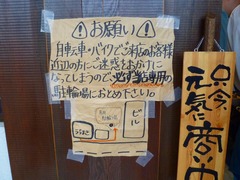 お願い
自転車・バイクでご来店のお客様
近辺の方にご迷惑をおかけに
なってしまうので、必ず当店専用の
駐輪場におとめ下さい。
ビル
只今
元気に商い中